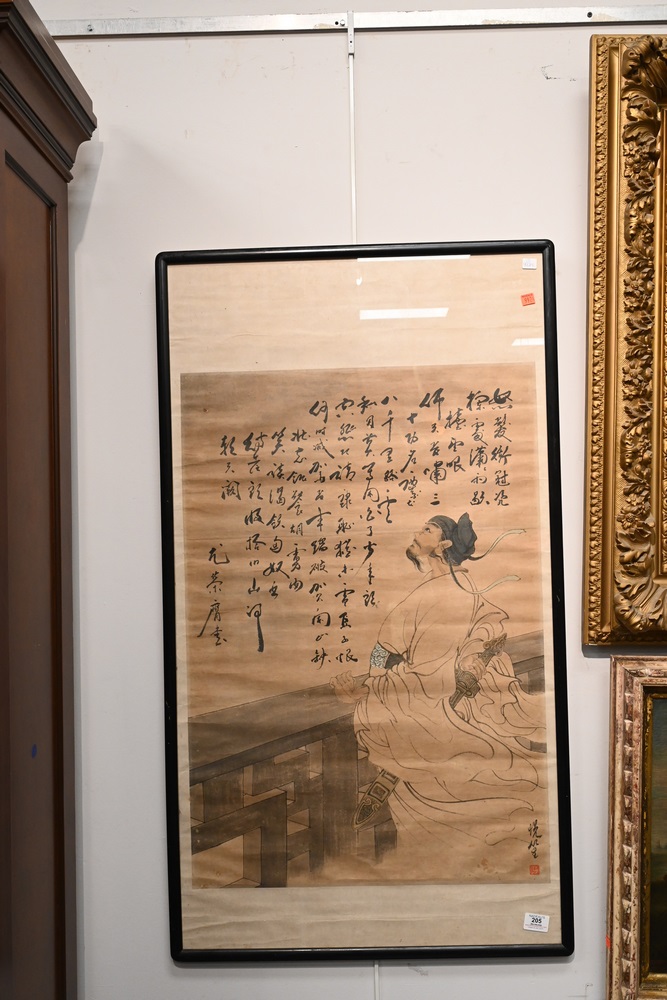 怒髮衝冠凭
欄處瀟雨歇
抬望眼
仰天長嘯三
十功名塵土
八千里路雲
和月莫等閒白了少年頭
空悲切靖康恥猶未雪臣子恨
何時滅駕長車踏破賀蘭山缺
壯志飢餐胡虜肉
笑談渴飲匈奴血
待從頭收拾旧山河
朝天闕
205